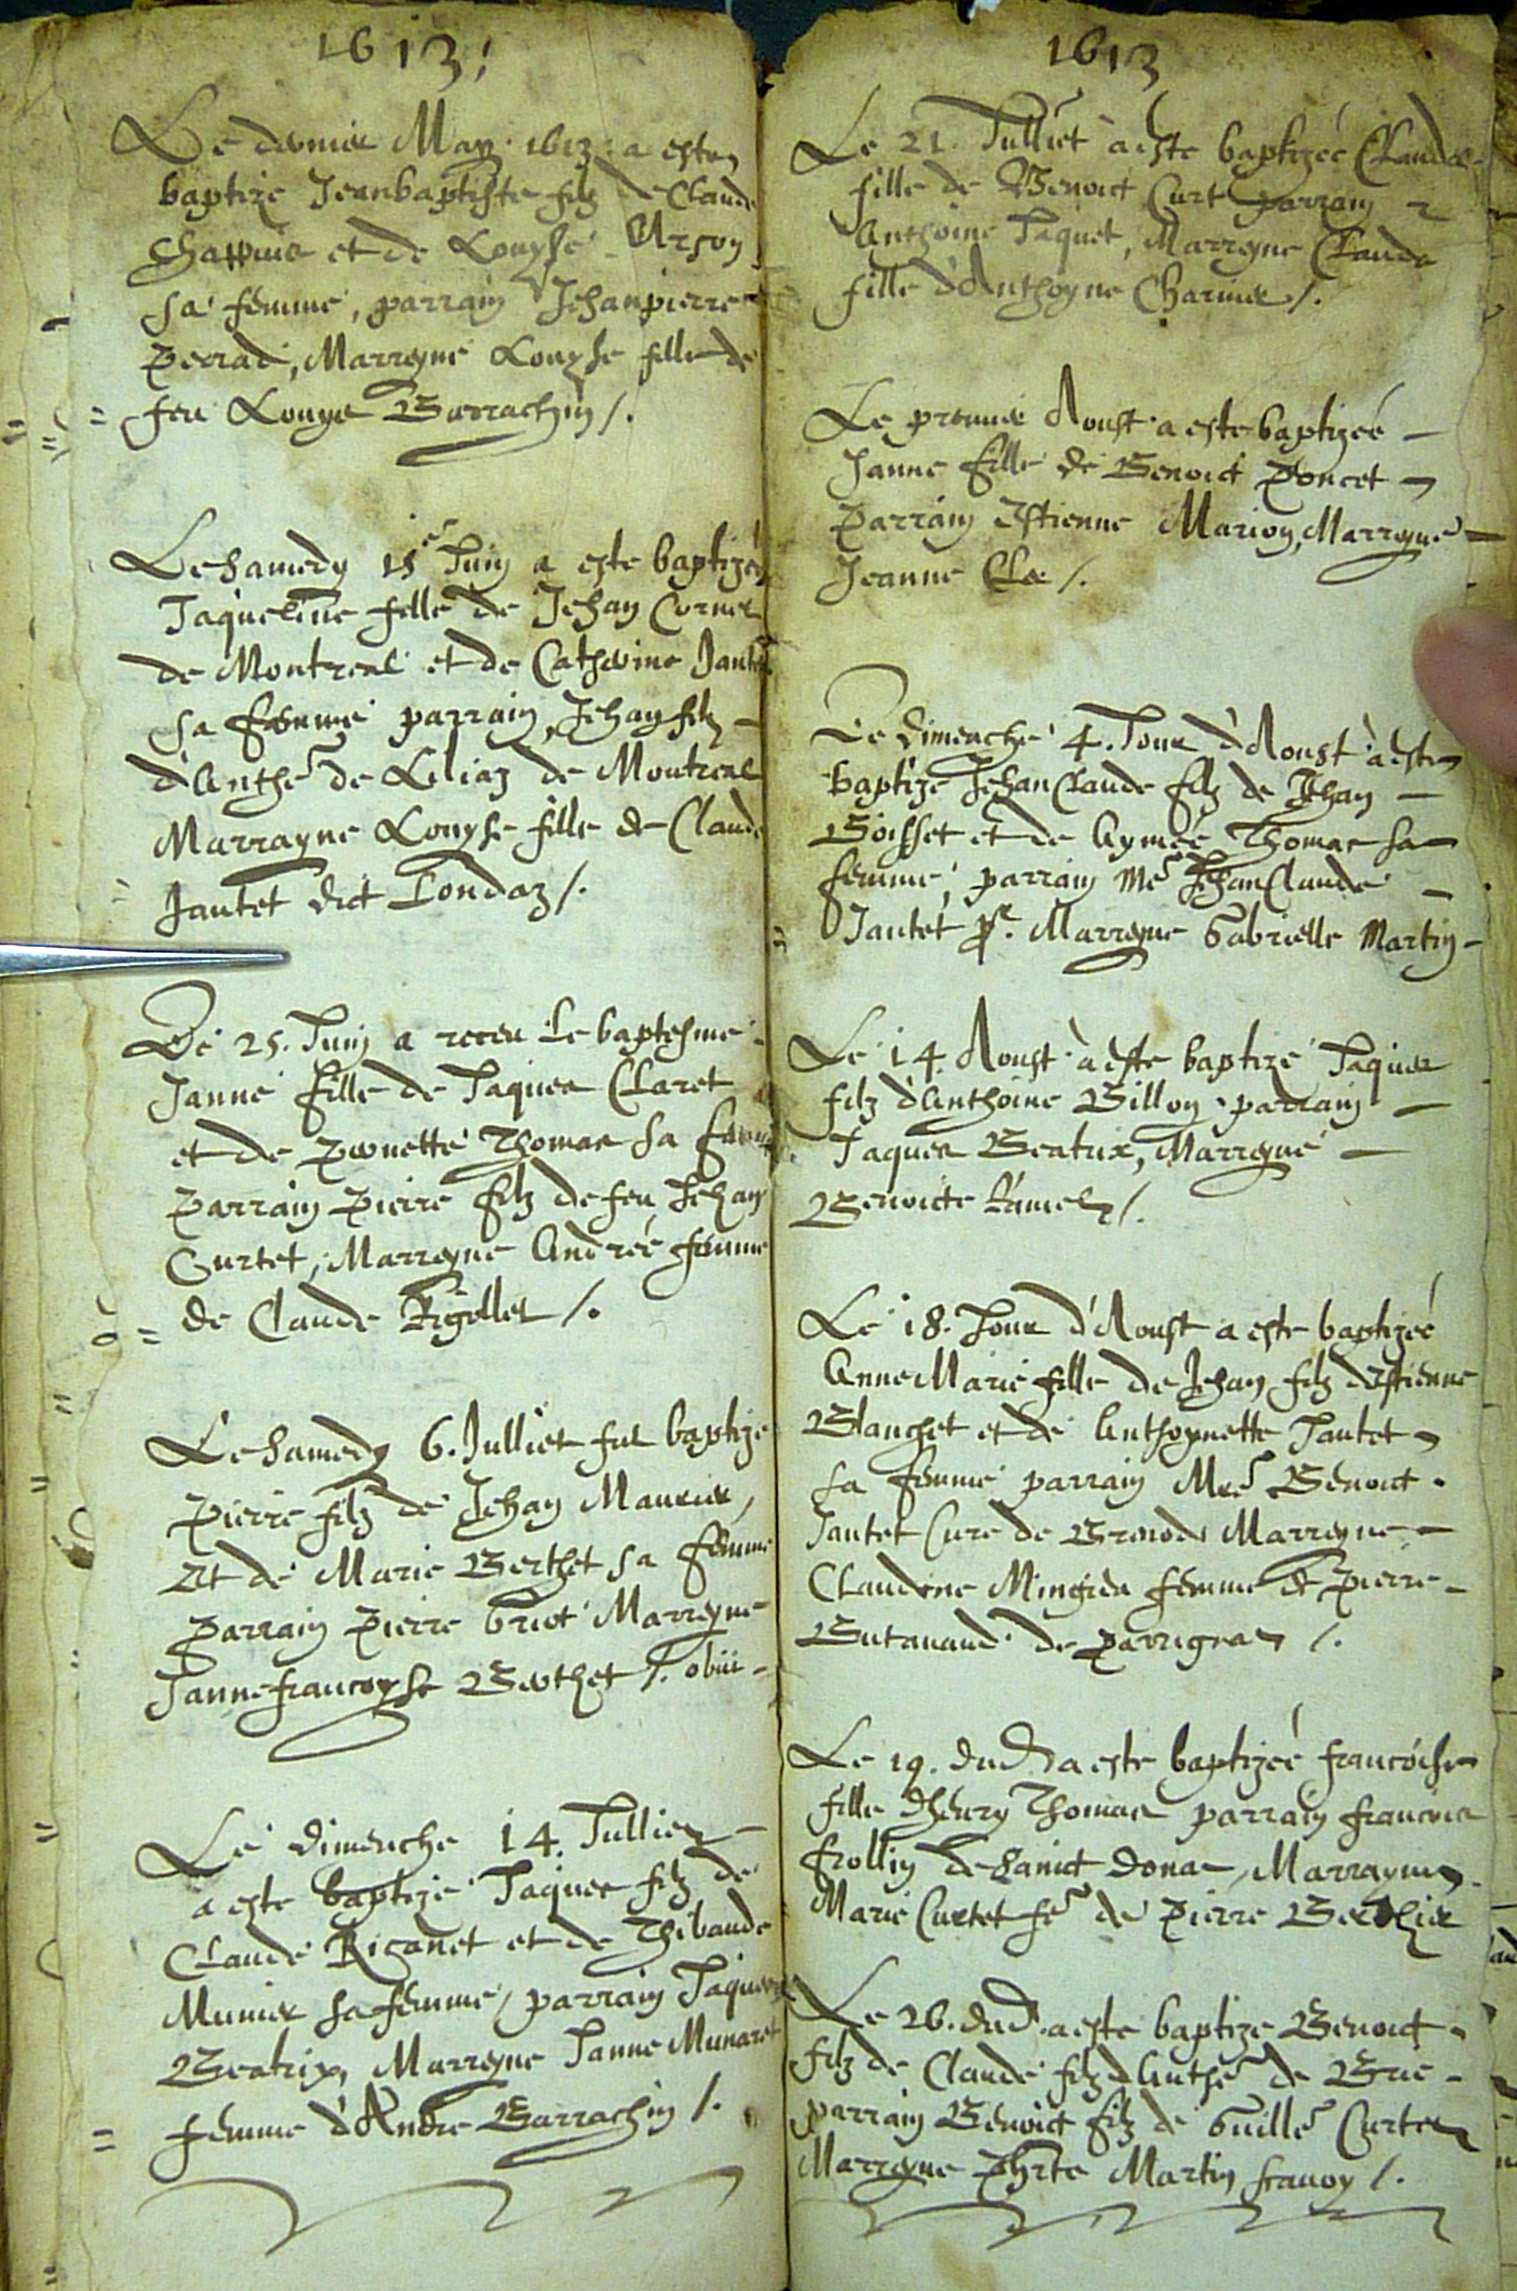 1613
Le dernier May 1613 a este
baptize Jeanbaptiste filz de Claude
Chappuis et de Louyse Arson
sa femme, parrain Jehanpierre
Perrad, Marreyne Louyse fille de
feu Louys Barrachin /.
Le samedy 15e Juin a este baptizée
Jaqueline fille de Jehan Cornel
de Montreal et de Catherine Jantet
sa femme parrain Jehan filz
d'Anthe de Lliaz de Montreal
Marrayne Louyse fille de Claude
Jantet dict Londaz /.
Le 25. Juin a receu le baptesme
Janne fille de Jaques Claret
et de Pernette Thomas sa femme
Parrain Pierre filz de feu Jehan
Curtet, Marreyne Andrée femme
de Claude Rigollet /.
Le samedy 6. Julliet fut baptize
Pierre filz de Jehan Maurier,
Et de Marie Berthet sa femme
Parrain Pierre Griot Marreyne
Jannefrancoyse Berthet /. obiit
Le dimenche 14. Julliet
a este baptizé Jaques filz de
Claude Riganet et de Thibaude
Munier sa femme, parrain Jaques
Beatrix, Marreyne Janne Munaret
femme d'Andre Barrachin /.
1613
Le 21. Julliet a este baptizée Claude
fille de Benoict Curt parrain
Anthoine Jaquet, Marreyne Claude
fille d'Anthoyne Charnier /.
Le premier Aoust a este baptizée
Janne fille de Benoict Poncet
Parrain Estienne Marion, Marreyne
Jeanne Cler /.
Le Dimenche 4. Jour d'Aoust a este
baptizé JehanClaude filz de Jehan
Boisset et de Aymée Thomas sa
femme, parrain Me JehanClaude
Jantet pr. Marreyne Gabrielle Martin
Le 14. Aoust a este baptizé Jaques
filz d'Anthoine Billon parrain
Jaques Beatrix, Marreyne
Benoicte Ramel /.
Le 18. Jour d'Aoust a este baptizée
AnneMarie fille de Jehan filz d'Estienne
Blanchet et de Anthoynette Jantet
sa femme parrain Mre Benoict
Jantet Cure de Brenod Marreyne
Claudine Mingieu femme de Pierre
Butavand de parrignas /.
Le 19. dud. a este baptizée Francoise
fille d'henry Thomas parrain Francois
Frollin de Sainct Donas, Marrayne
Marie Curtet fe de Pierre Berthier
Le 26. dud. a este baptize Benoict
filz de Claude filz d'Anthe de Brie
parrain Benoict filz de Guille Curtet
Marreyne Phrte Martin Francoy /.